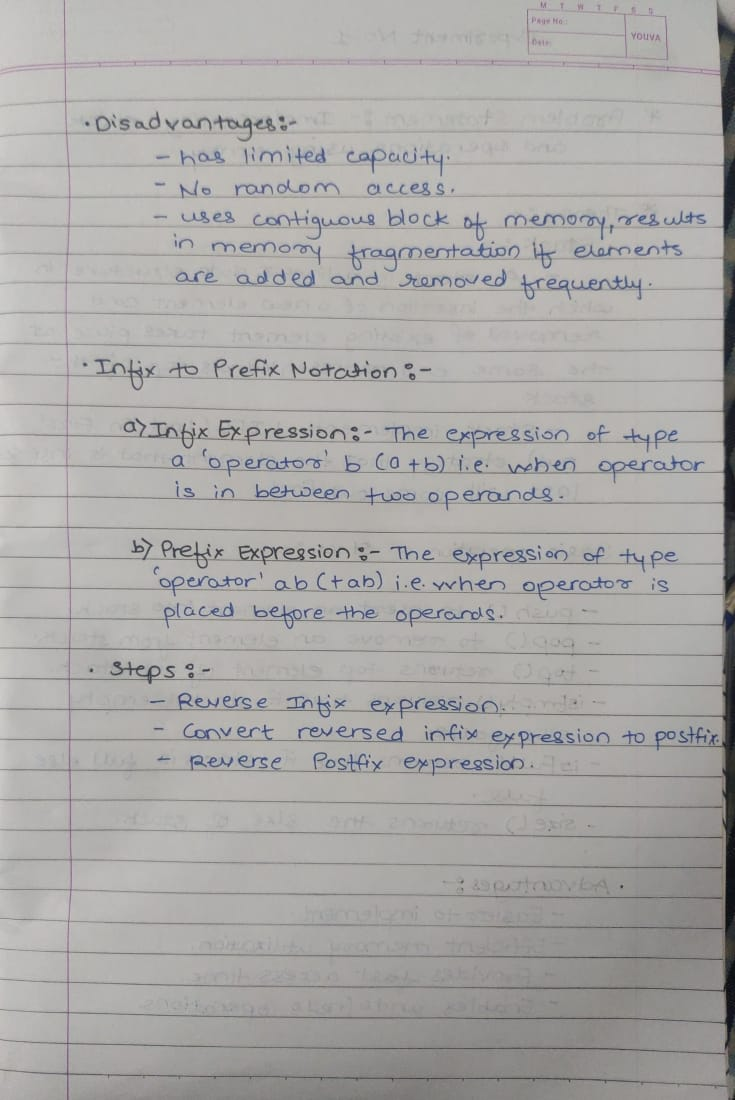 M T W T F S S
Page No.:
Date:
YOUVA
• Disadvantages:-
- has limited capacity.
- No random access.
- uses contiguous block of memory, results
in memory fragmentation if elements
are added and removed frequently.
• Infix to Prefix Notation:-
a) Infix Expression:- The expression of type
a 'operator' b (a+b) i.e. when operator
is in between two operands.
b) Prefix Expression:- The expression of type
'operator' ab (+ab) i.e. when operator is
placed before the operands.
• Steps:-
- Reverse Infix expression.
- Convert reversed infix expression to postfix.
- Reverse Postfix expression.